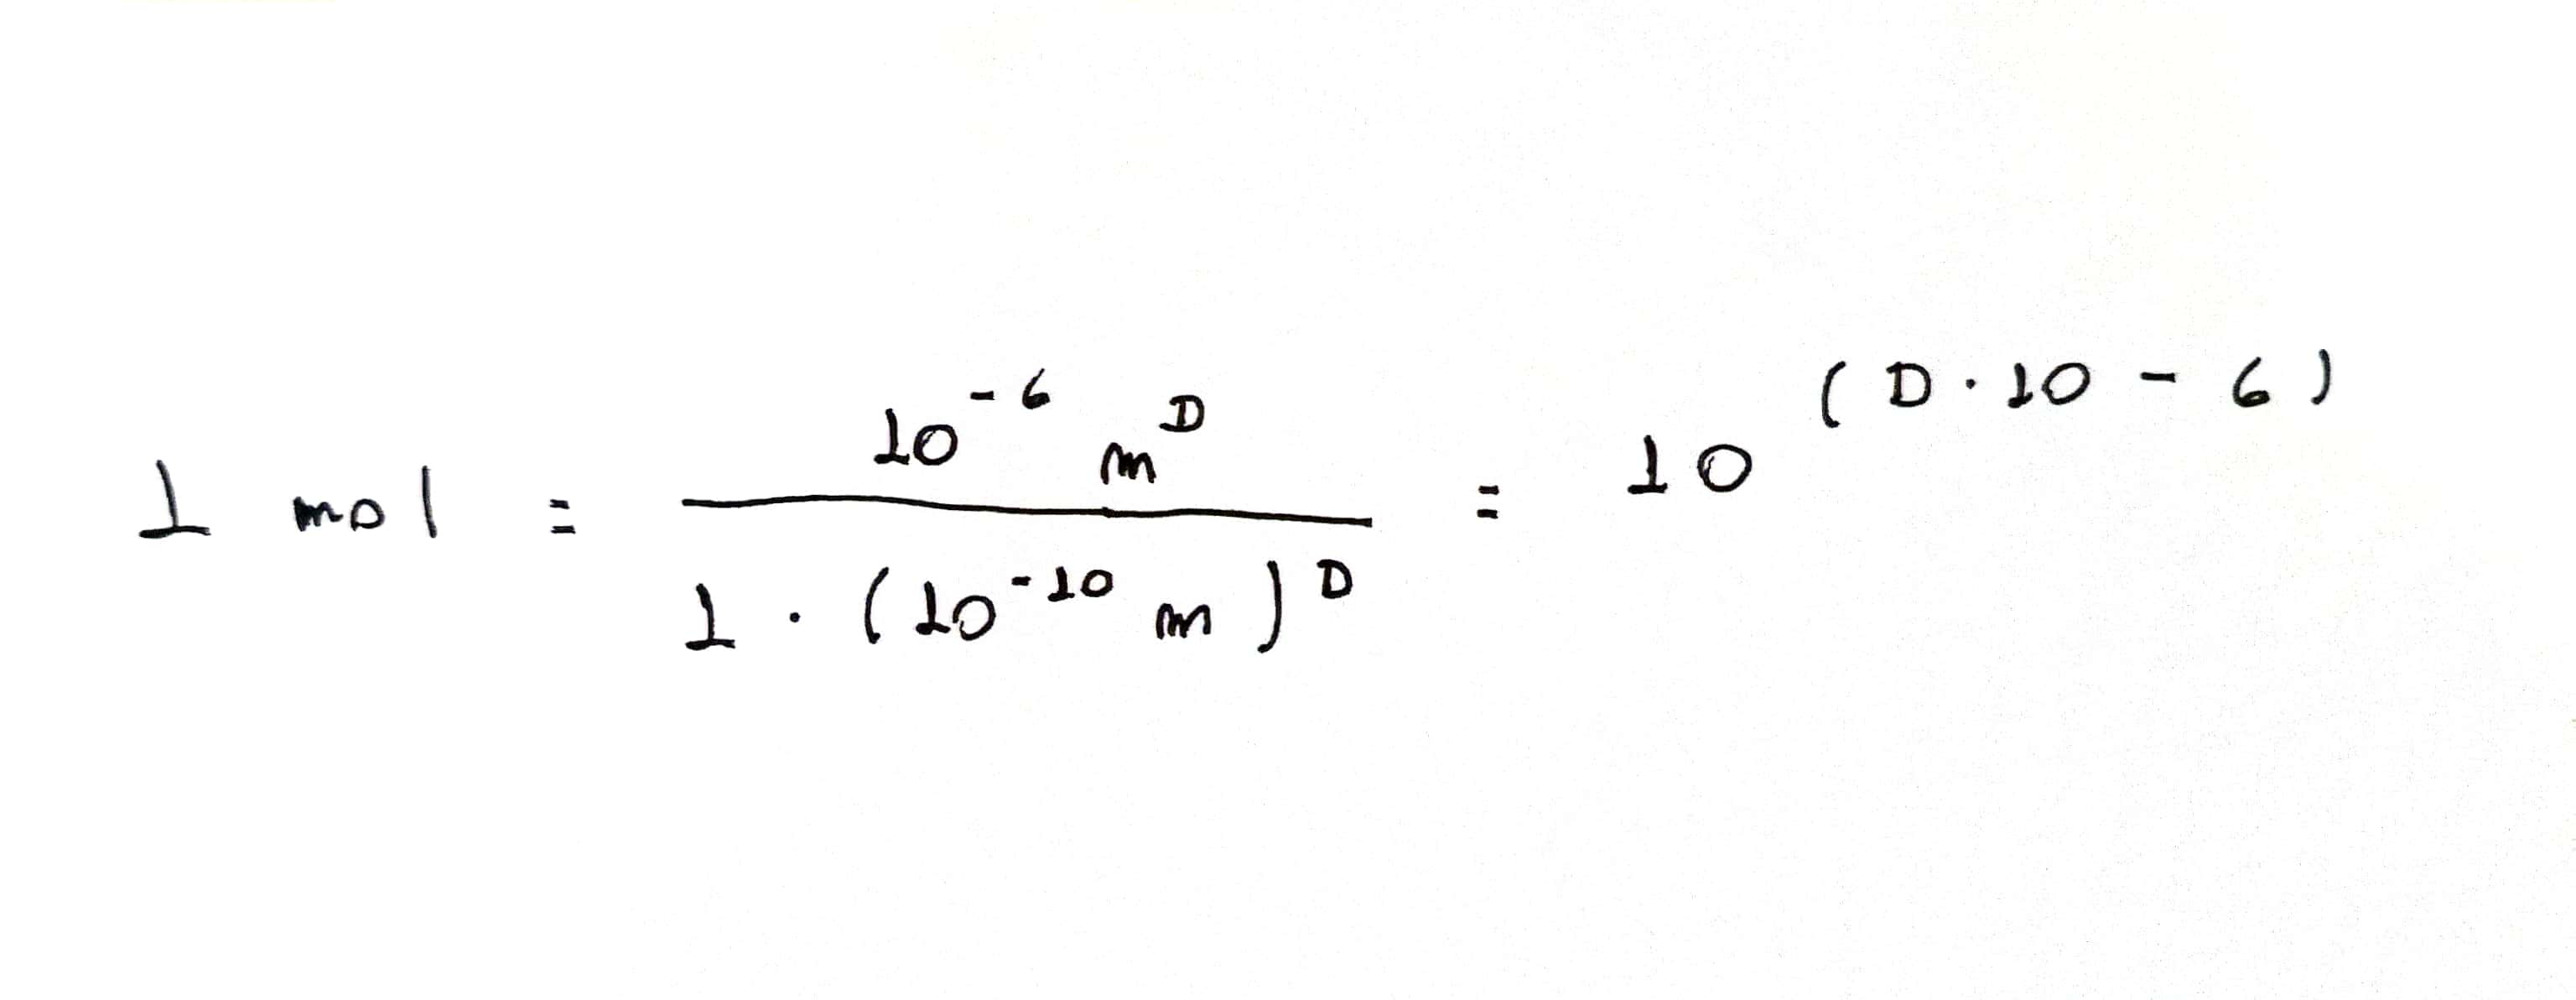 1 mol = \frac{10^{-6} m^{D}}{1 \cdot (10^{-10} m)^{D}} = 10^{(D \cdot 10 - 6)}